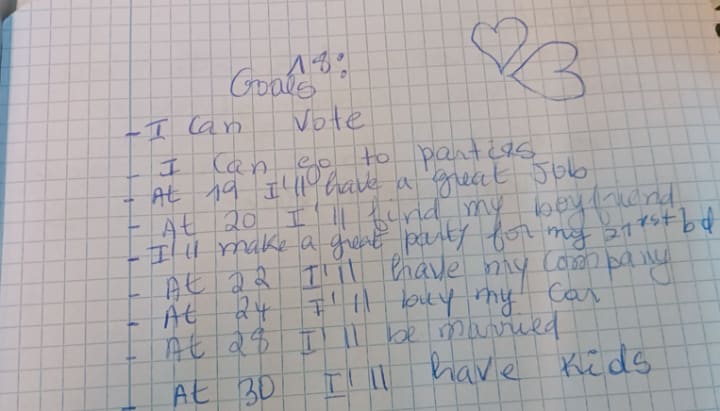 18:
Goals
- I can vote
- I can go to parties
- At 19 I'll have a great job
- At 20 I'll find my boyfriend
- I'll make a great party for my 21rst bd
- At 22 I'll have my company
- At 24 I'll buy my car
- At 28 I'll be married
- At 30 I'll have kids